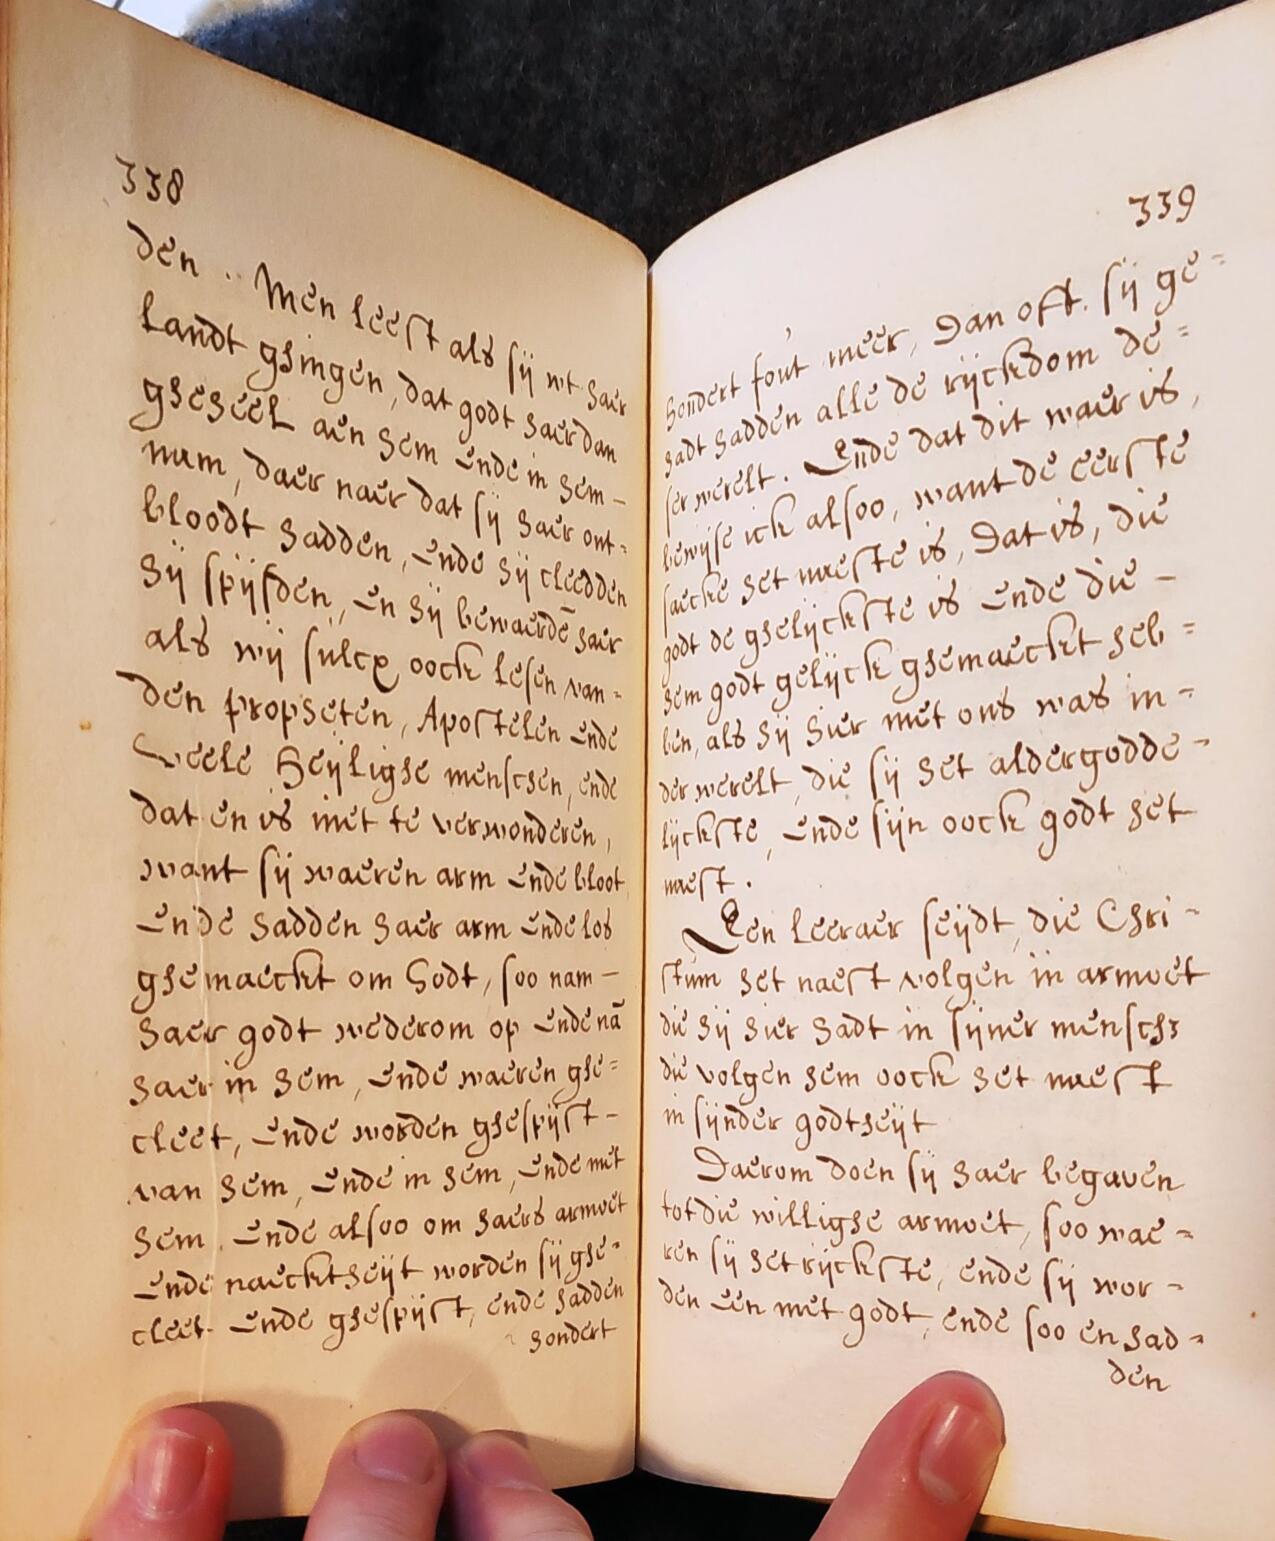 338
den. Men leest als sij wt haer
landt ghingen, dat godt haer dan
gheheel aen hem ende in hem –
nam, daer naer dat sij haer ont=
bloodt hadden, ende hij cleedden
hij spijsden, en hij bewaerdē haer
als wij sulcx oock lesen van=
den propheten, Apostelen ende
veele heijlighe menschen, ende
dat en is niet te verwonderen,
want sij waeren arm ende bloot
ende hadden haer arm ende los
ghemaeckt om Godt, soo nam –
haer godt wederom op ende nā
haer in hem, ende waeren ghe=
cleet, ende worden ghespijst –
van hem, ende in hem, ende met
hem. ende alsoo om haers armoet
ende naecktheijt worden sij ghe=
cleet. ende ghespijst, ende hadden
hondert
339
hondert fout meer, dan oft. sij ge=
hadt hadden alle de rijckdom de=
ser werelt. Ende dat dit waer is,
bewijse ick alsoo, want de eerste
saecke het naeste is, dat is, die
godt de ghelijckste is ende die –
hem godt gelijck ghemaeckt heb=
ben, als hij hier met ons was in=
der werelt, die sij het aldergodde=
lijckste, ende sijn oock godt het
naest.
Een leeraer seijdt, die Chri=
stum het naest volgen in armoet
die hij hier hadt in sijner mensch:
die volgen hem oock het naest
in sijnder godtheijt
Daerom doen sij haer begaven
tot die willighe armoet, soo wae=
ren sij het rijckste, ende sij wor=
den een met godt, ende soo en had=
den